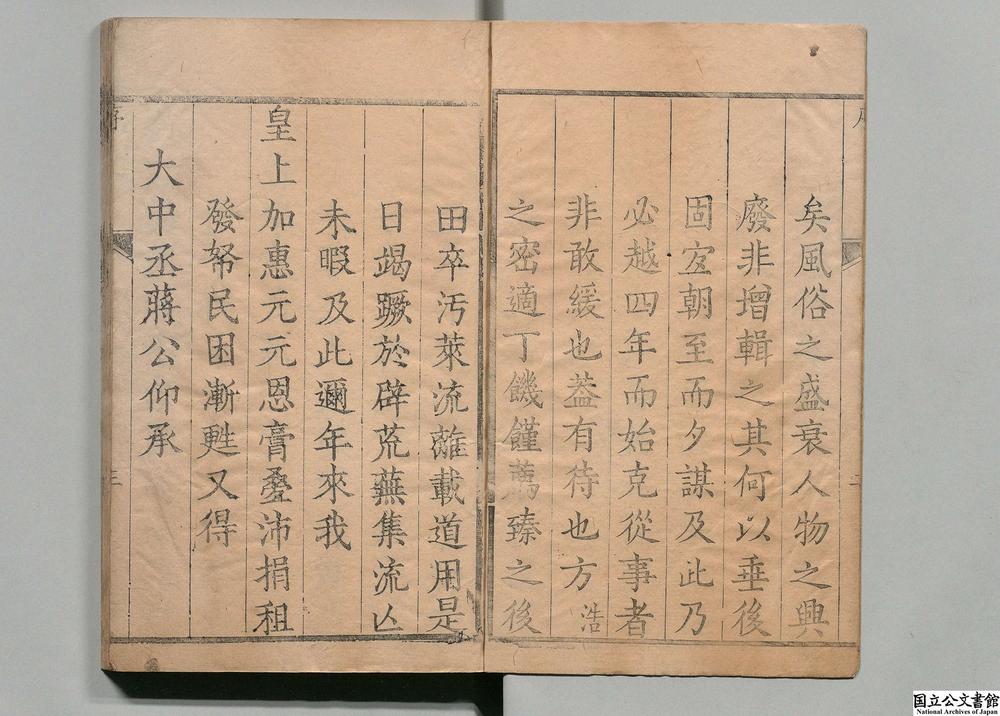 矣風俗之盛衰人物之興
廢非增輯之其何以垂後
固宐朝至而夕謀及此乃
必越四年而始克從事者
非敢緩也葢有待也方浩
之密適丁饑饉薦臻之後
田卒汚萊流離載道用是
日竭蹶於辟荒蕪集流亾
未暇及此邇年來我
皇上加惠元元恩膏疊沛捐租
發帑民困漸甦又得
大中丞蔣公仰承
序
三
国立公文書館
National Archives of Japan